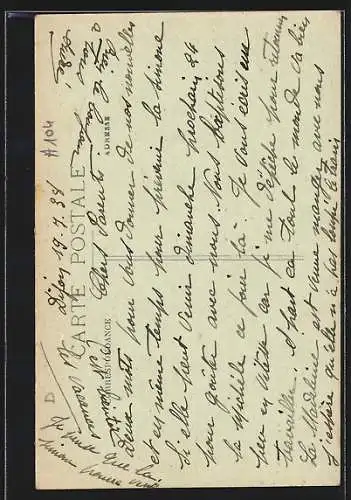 #104
CARTE POSTALE
CORRESPONDANCE
ADRESSE
Dijon 19.7.38
Chers Parents
Deux mots pour vous donner de nos nouvelles
et en même temps pour prévenir la Simone
si elle peut venir dimanche prochain 24
pour goûter avec nous. Nous baptisons
la Michèle ce jour là. Je vous écris une
peu en vitesse car je me dépêche pour retourner
travailler. à part ça tout le monde va bien
La Madeleine est venue manger avec nous
j'espère qu'elle n'a pas
Je pense que la
Simone pourra venir
D